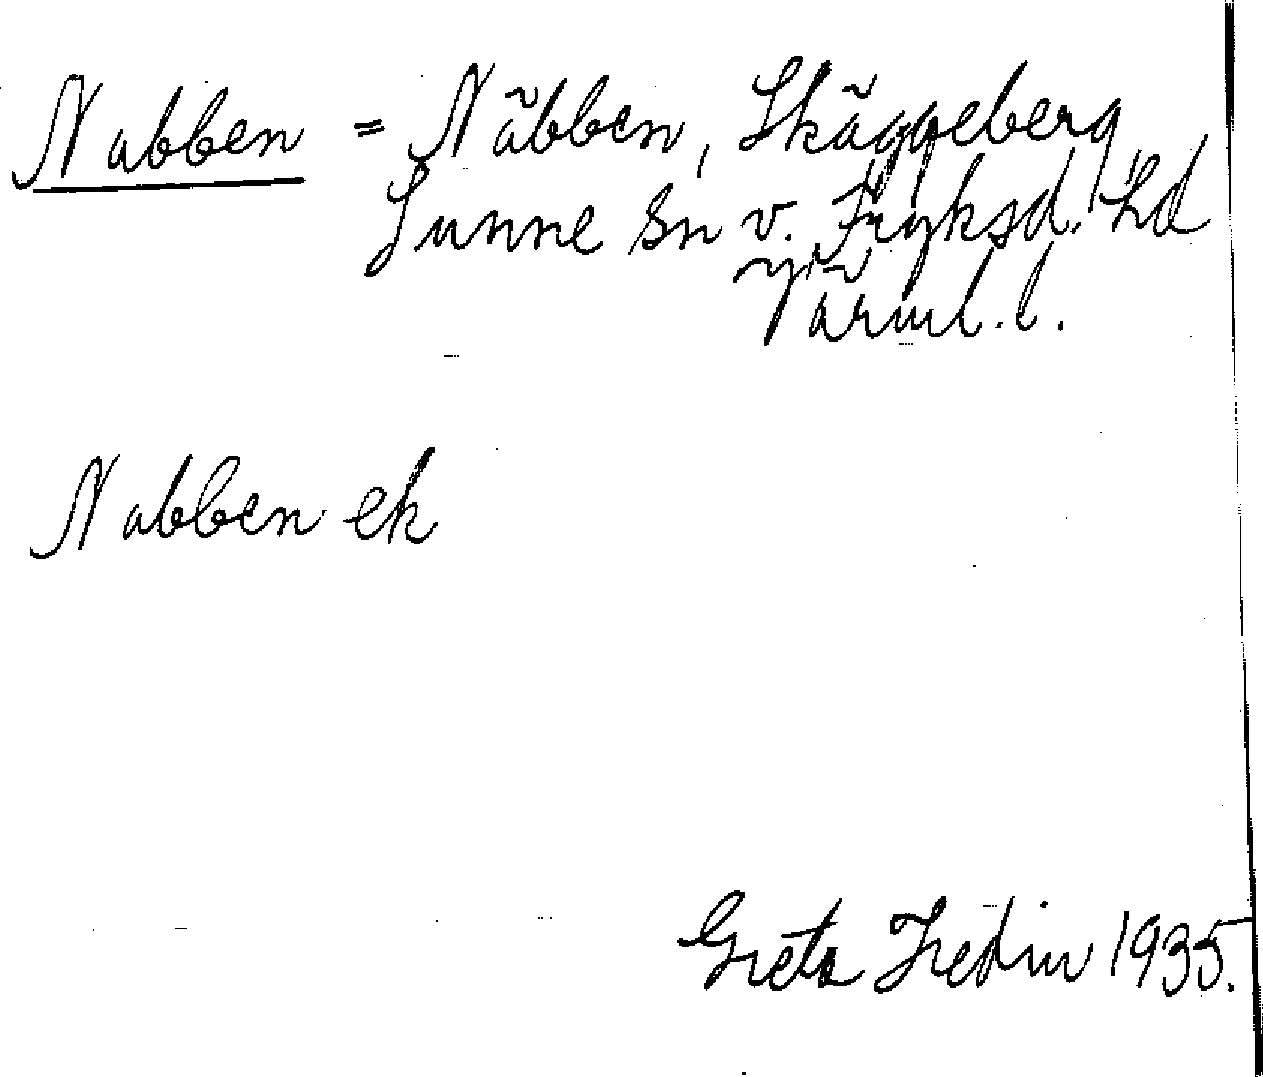 Nabben = Näbben, Skäggeberg,
Sunne sn v. Fryksd. hd
Värml. l.
Nabben ek
Greta Hedin 1935.